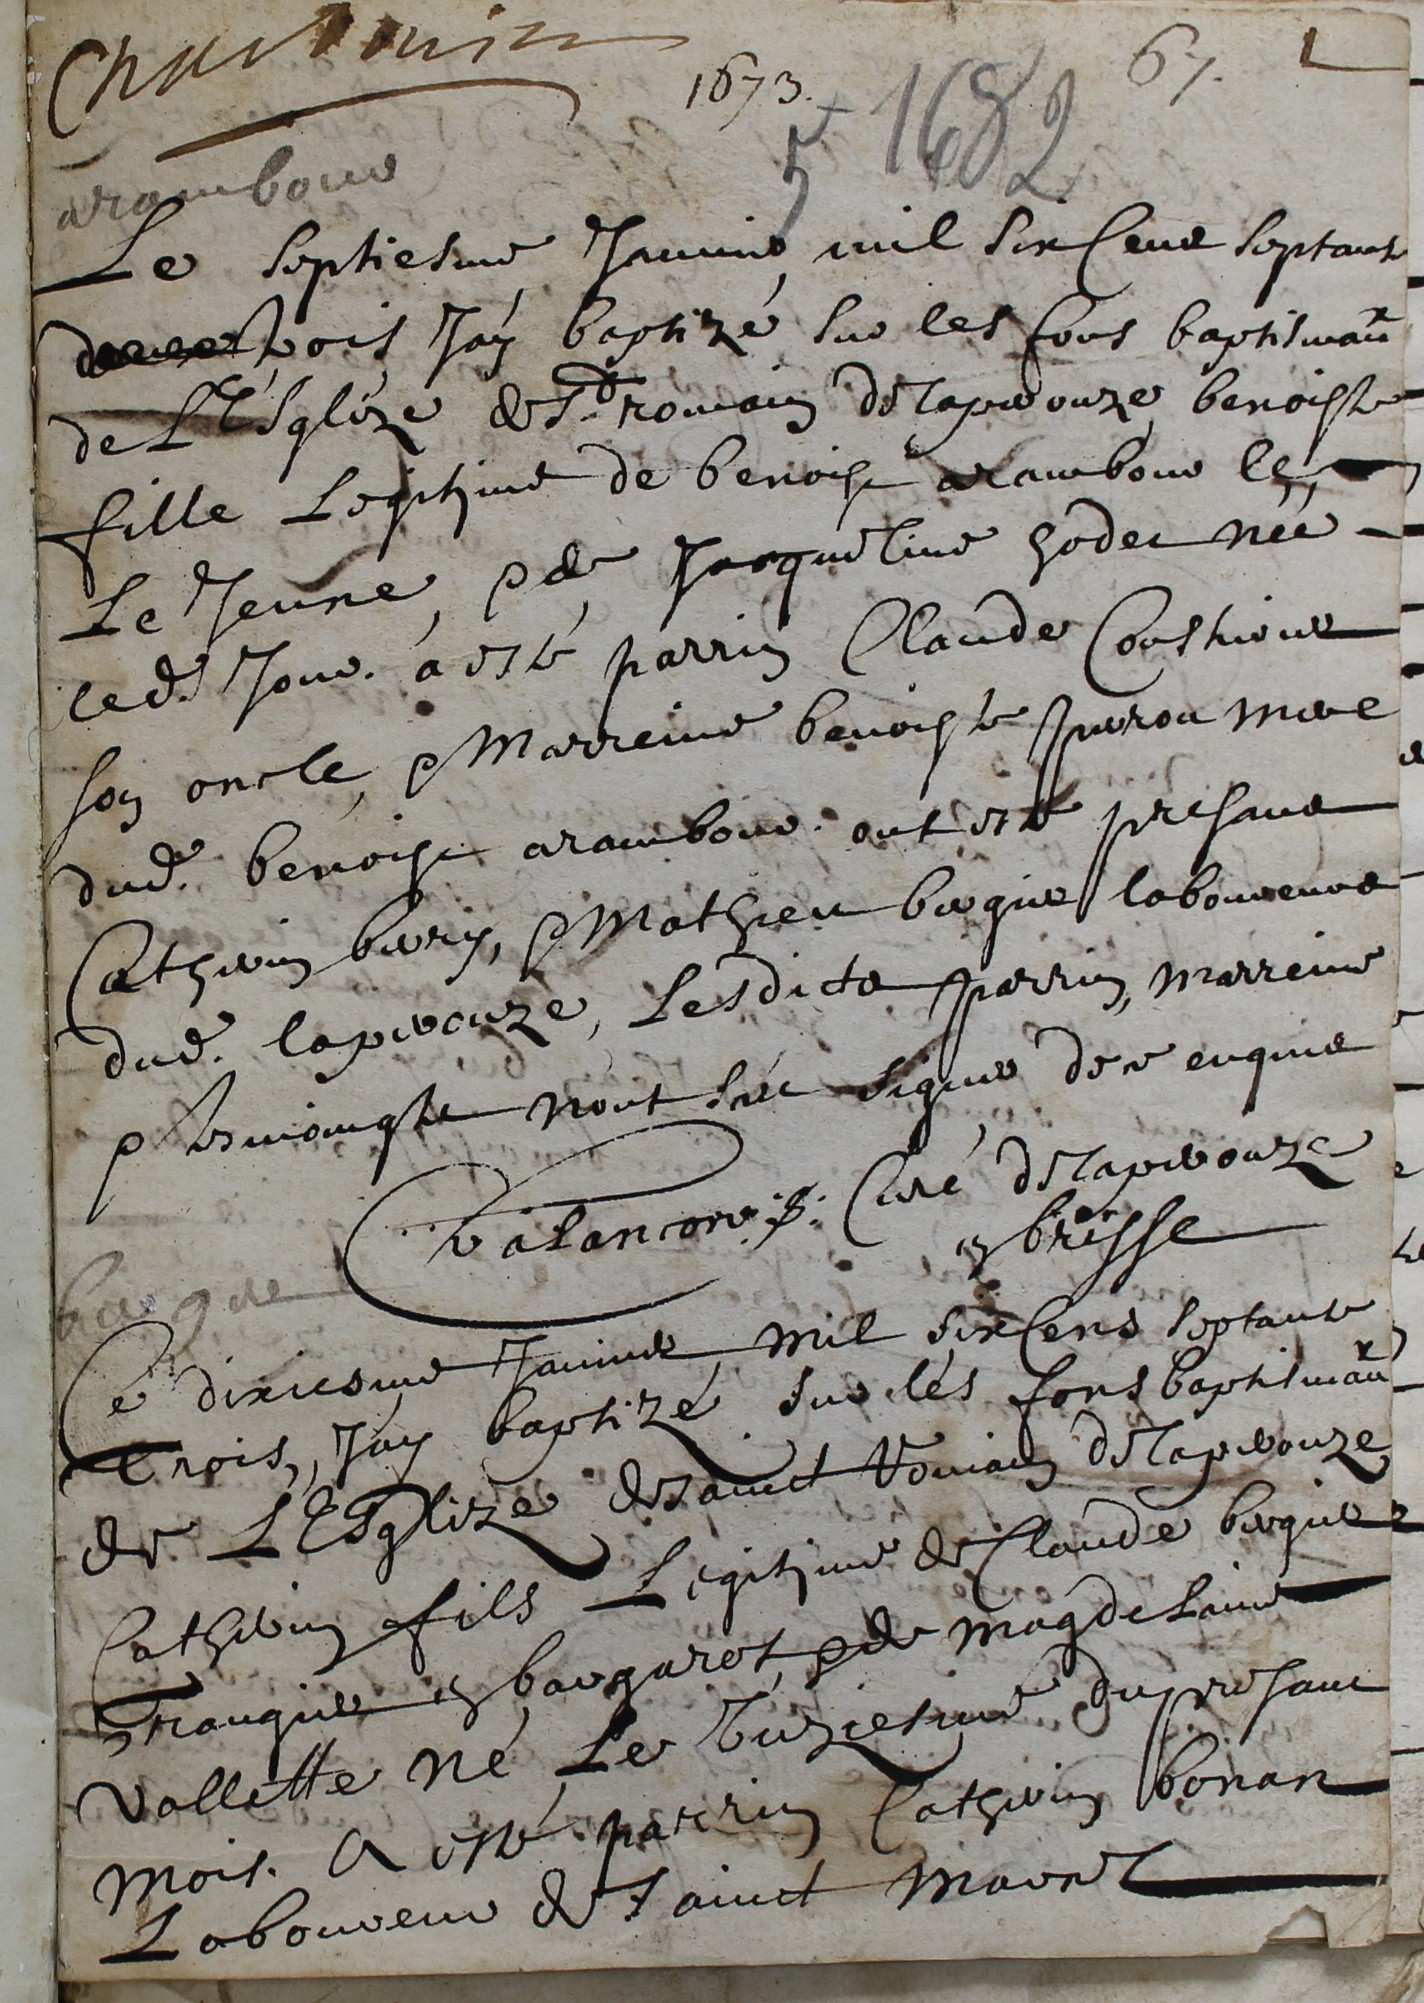 1673. 67. 1
5 1682
arambour
Le septiesme Janvier mil six Cens septante
trois Jay baptizé sur les fons baptismaux
de L'Esglize de St. romain de laperouze benoiste
fille Legitime de benoist arambour le
Le Jeune, & de Jacqueline godet née
led. Jour. a esté parrin Claude Cousturier
son oncle, & Marreine benoiste perrou mere
dud. benoist arambour. ont esté presans
Catherin bury, & Mathieu bergier laboureurs
dud. laperouze, Lesdicts parrin, marreine
& tesmoingts n'ont sceu signer de ce enquis
Valancon p. Curé de laperouze
en bresse
bergier
Ce dixiesme Janvier mil six Cens septante
trois, Jay baptizé sur lés fons baptismaux
de L'Esglize de sainct Romain de laperouze
Catherin fils Legitime de Claude bergier
granger en bergaret, & de magdelaine
vallette né Le dixiesme du presant
mois. A esté parrin Catherin bonan
Laboureur de sainct marcel